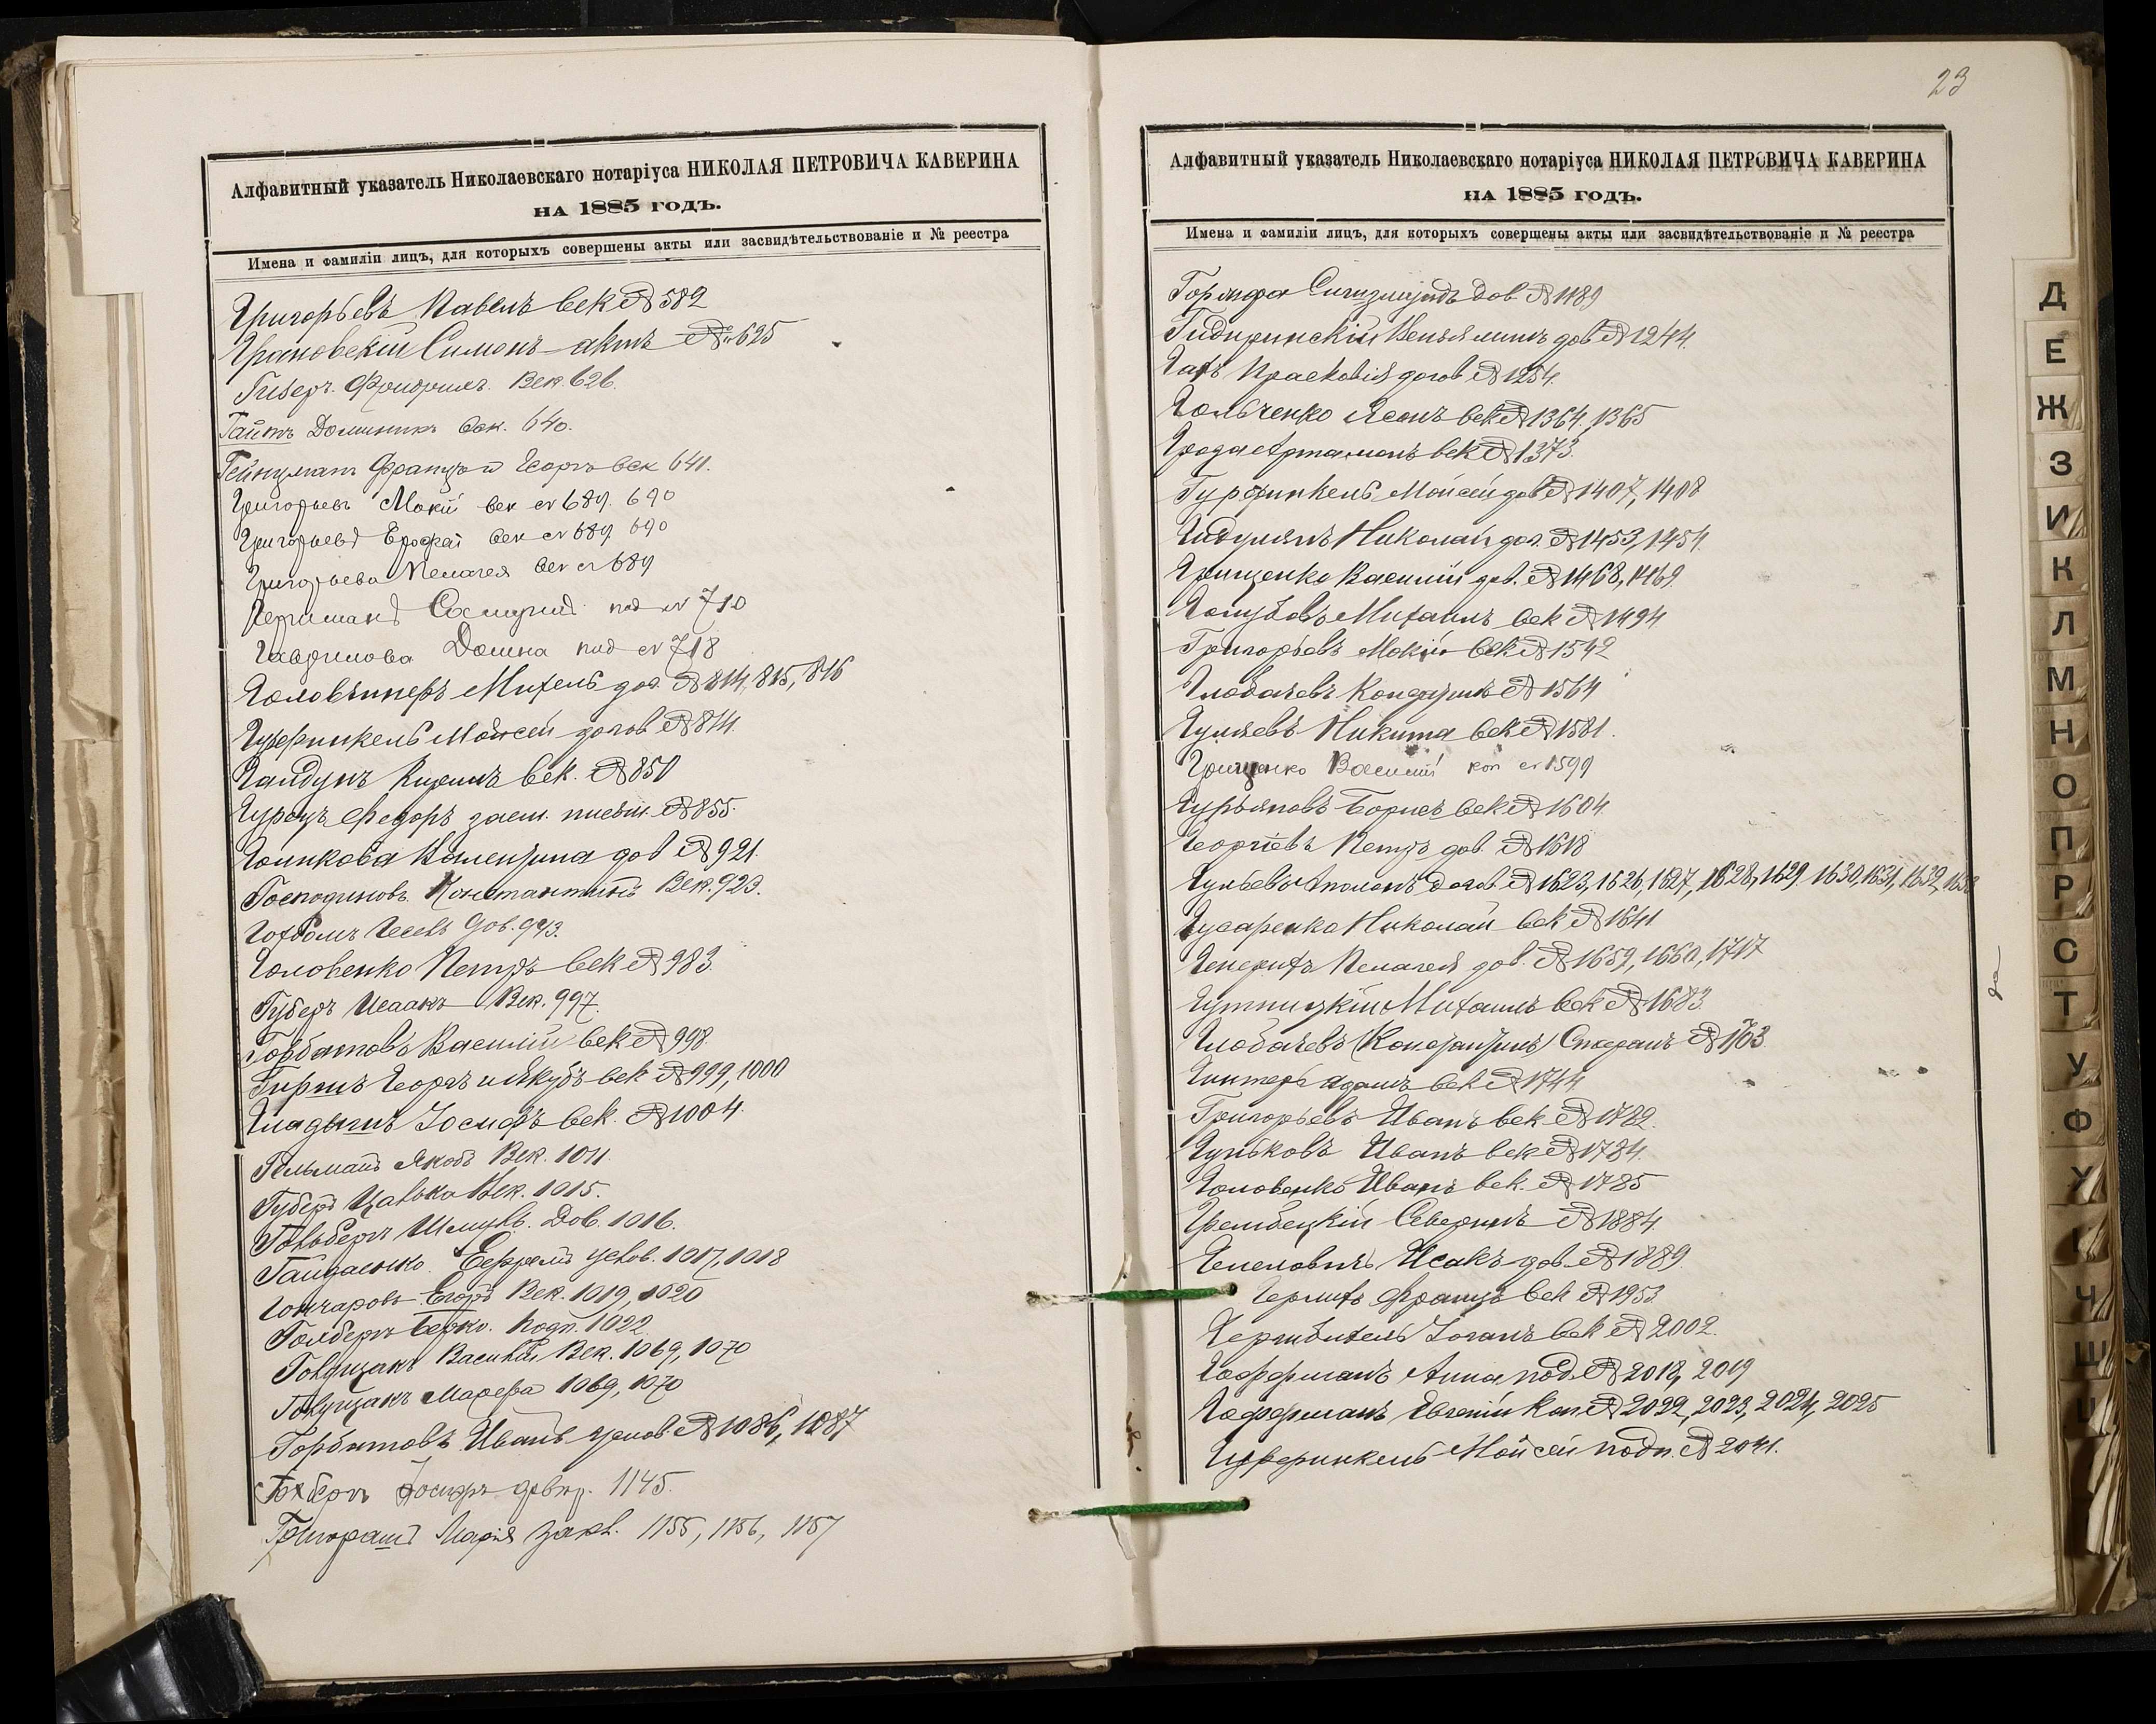 Алфавитный указатель Николаевскаго нотаріуса НИКОЛАЯ ПЕТРОВИЧА КАВЕРИНА
НА 1885 ГОДЪ.
Имена и фамиліи лицъ, для которыхъ совершены акты или засвидѣтельствованіе и № реестра
Григорьевъ Павелъ век № 582
Грановскій Симонъ актъ № 625
Гиберъ Фридрихъ. Век. 626.
Гайтъ Доминикъ век. 640.
Францъ и Георгъ век 641.
Григорьевъ Мокій век № 689. 690
Григорьевъ Ерофей век № 689 690
Григорьева Пелагея век № 689
под № 710
Гаврилова Домна под № 718
Головчинеръ Михель дог. № 814, 815, 816
Гурфинкель Мойсей догов № 814.
Гайдукъ Кирилъ век. № 850
Федоръ заем. письм. № 855.
Голикова Валентина дов № 921.
Господиновъ Константинъ Век. 923.
Дов. 943.
Головенко Петръ век № 983.
Губеръ Исаакъ Век. 997.
Горбатовъ Василій век № 998.
Гиршъ Георгъ и Якубъ век № 999, 1000
Гладышъ Іосифъ век. № 1004.
Гельманъ Якобъ Век. 1011.
Губеръ Век. 1015.
Гольбергъ Шмуль. Дов. 1016.
Гайдаенко Ефремъ услов. 1017, 1018
Гончаровъ Егоръ Век. 1019, 1020
Голберъ Берко. Подп. 1022
Василій Век. 1069, 1070
Марфа 1069, 1070
Горбатовъ Иванъ услов. № 1086, 1087
Іосифъ 1145.
Григорашъ Марія 1155, 1156, 1157
23
Алфавитный указатель Николаевскаго нотаріуса НИКОЛАЯ ПЕТРОВИЧА КАВЕРИНА
НА 1885 ГОДЪ.
Имена и фамиліи лицъ, для которыхъ совершены акты или засвидѣтельствованіе и № реестра
Сигизмундъ дов № 1189
Веньяминъ дов № 1244.
Гахъ Прасковія догов № 1254.
Гольченко Ясонъ век № 1364. 1365
Грода Артамонъ век № 1373.
Гурфинкель Мойсей дов № 1407, 1408
Николай дов. № 1453, 1454.
Грищенко Василій дов. № 1468, 1469.
Голубовъ Михаилъ век № 1494
Григорьевъ Мокій век № 1542
Глобачевъ № 1564
Гуляевъ Никита век № 1581.
Грищенко Василій коп № 1599
Гурьяновъ Борисъ век № 1604.
Георгіевъ Петръ дов. № 1618
догов. № 1623, 1626, 1627, 1628, 1629. 1630, 1631, 1632, 1633
Гусаренко Николай век № 1641
Пелагея дов. № 1659, 1660, 1717
Михаилъ век № 1683.
Глобачевъ Степанъ № 1703.
Гинтеръ Адамъ век № 1744
Григорьевъ Иванъ век № 1782.
Гуньковъ Иванъ век № 1784.
Головенко Иванъ век. № 1785
Грембецкій Северинъ № 1884
Исакъ дов. № 1889.
Герлихъ Францъ век № 1953.
Іоганъ век № 2002.
Гоффманъ Анна под. № 2018, 2019
Гоффманъ Евгеній Коп. № 2022, 2023, 2024, 2025
Гурфинкель Мойсей подп. № 2041.
Д
Е
Ж
З
И
К
Л
М
Н
О
П
Р
С
Т
У
Ф
Ч
Ш